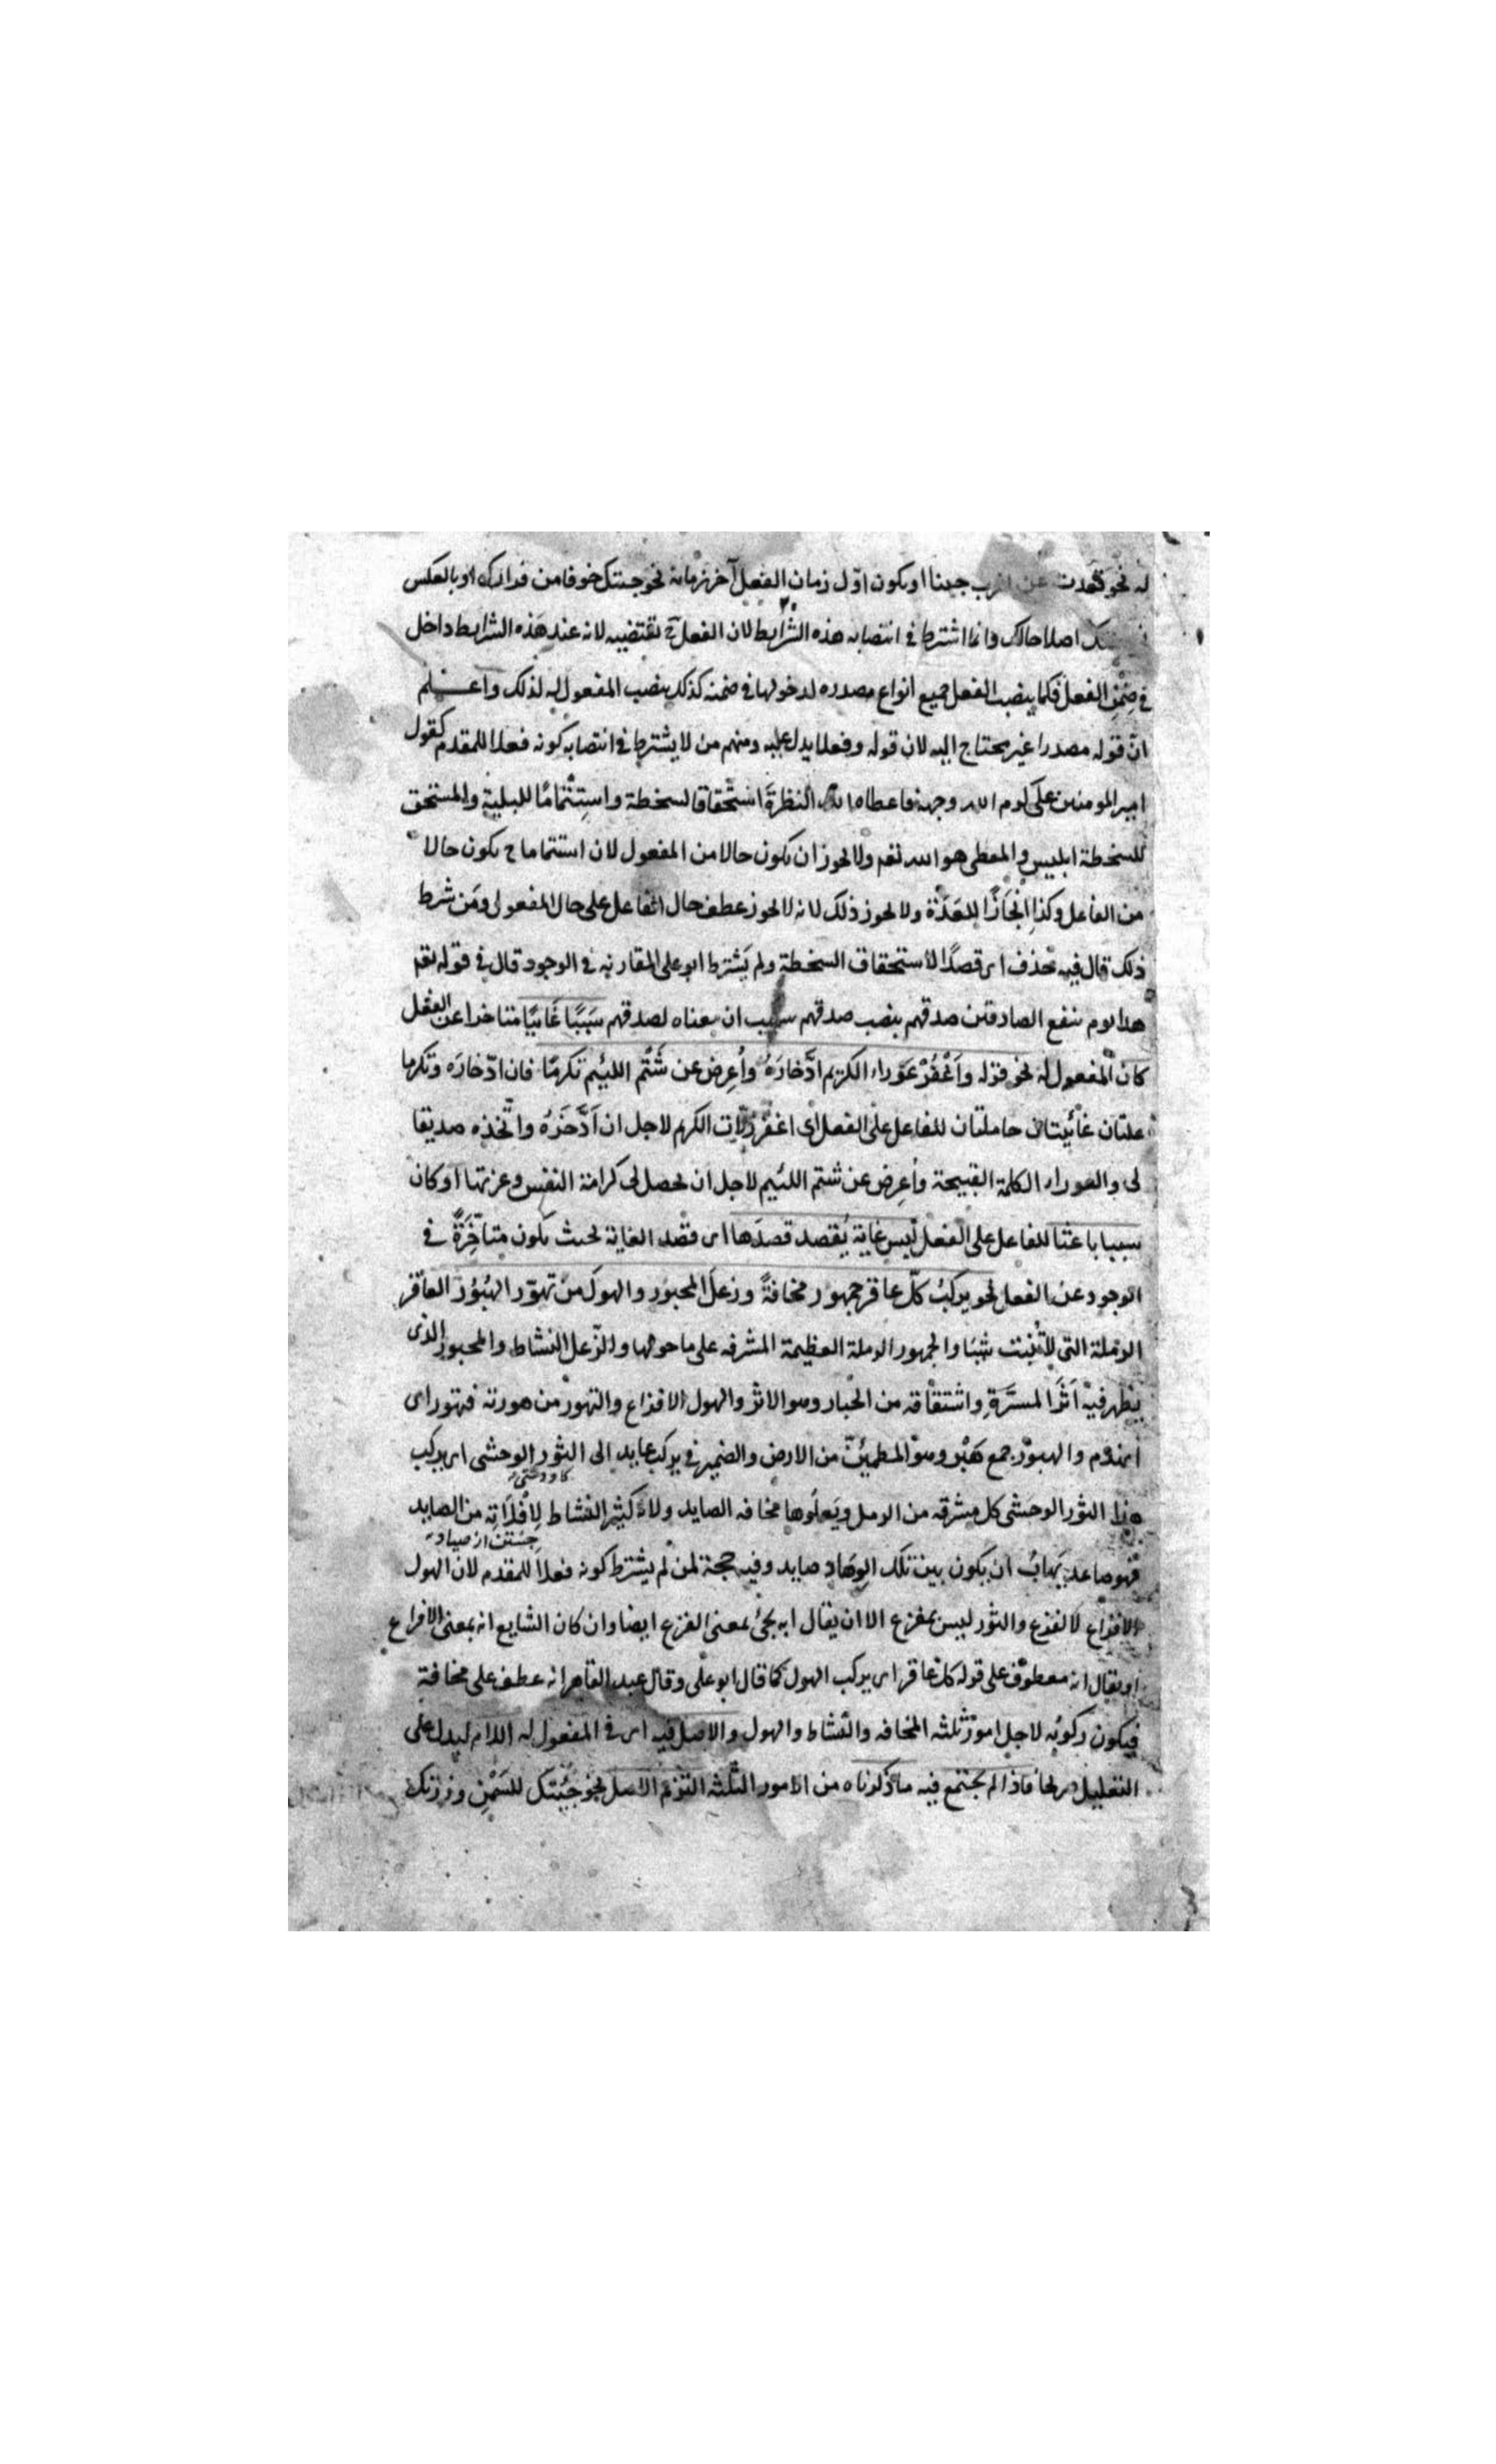 له نحو قعدت عن الحرب جبنا او يكون اوّل زمان الفعل آخر زمانه نحو جئتك خوفا من فرارك او بالعكس
اصلاحا لك وانما اشترط في انتصابه هذه الشرايط لان الفعل ح يقتضيه لانه عند هذه الشرايط داخل
في ضمن الفعل فكما ينصب الفعل جميع انواع مصدره لدخولها في ضمنه كذلك ينصب المفعول له لذلك واعلم
انّ قوله مصدرا غير محتاج اليه لان قوله وفعلا يدل عليه ومنهم من لا يشترط في انتصابه كونه فعلا للمقدم كقول
امير المومنين على كرم الله وجهه فاعطاه الله النظرة استحقاقا لسخطة واستتماما للبلية والمستحق
للسخطة ابليس والمعطى هو الله تعم ولا يجوز ان يكون حالا من المفعول لان استتماما ح يكون حالا
من الفاعل وكذا انجازا للعدة ولا يجوز ذلك لانه لا يجوز عطف حال الفاعل على حال المفعول ومن شرط
ذلك قال فيه بحذف اى قصدا لاستحقاق السخطة ولم يشترط ابو على المقارنة في الوجود قال في قوله تعم
هذا يوم ينفع الصادقين صدقهم بنصب صدقهم ان معناه لصدقهم سَبَبًا غَائيًا متاخرا عن الفعل
كان المفعول له نحو قوله واَغْفُرْ عَوْراء الكريم ادّخارَهُ واُعرِض عن شَتْم اللئيم تكرمًا فان ادّخارَه وتكرما
علتان غائيتان حاملتان للفاعل على الفعل اى اغفر زلّات الكريم لاجل ان اَدَّخَرُهُ واتّخذه صديقا
لى والعوراء الكلمة القبيحة واُعرِض عن شتم اللئيم لاجل ان يحصل لى كرامة النفس وعزتها او كان
سببا باعثا للفاعل على الفعل ليس غاية يُقصد قصدَها اى قصد الغاية بحيث يكون متاخّرةً في
الوجود عن الفعل نحو يركبُ كلّ عاقرٍ جمهور مخافةً وزعلَ المحبور والهولَ من تهوّر الهُبُوْر العاقر
الرملة التى لا تُنبت شيئا والجمهور الرملة العظيمة المشرفه على ما حولها والزّعل النشاط والمحبور الذى
يظهر فيه اَثَرُ المسرَّةِ واشتقاقه من الحبار وهو الاثر والهول الافزاع والتهور من هورته فتهور اى
انهدم والهبور جمع هَبْر وهو المطمئِنّ من الارض والضمير في يركب عايد الى الثور الوحشى اى يركب
كاو دشتى
هذا الثور الوحشى كل مشرفه من الرمل ويَعلُوها مخافه الصايد ولانه كثير النشاط لِاِفْلَاتِه من الصايد
جستن از صياد
فهو صاعد يَهابُ ان يكون بين تلك الوِهَاد صايد وفيه حجة لمن لم يشترط كونه فعلا للمقدم لان الهول
الافزاع لا الفزع والثور ليس بمفزع الا ان يقال انه يجئ بمعنى الفزع ايضا وان كان الشايع انه بمعنى الافزاع
او يقال انه معطوف على قوله كل عاقر اى يركب الهول كما قال ابو على وقال عبد القاهر انه عطف على مخافة
فيكون ركوبه لاجل امور ثلثه المخافه والنشاط والهول والاصل فيه اى في المفعول له اللام ليدل على
التعليل صريحا فاذا لم يجتمع فيه ما ذكرناه من الامور الثلثه التزم الاصل نحو جئتك للسَّمْنِ وزرتك